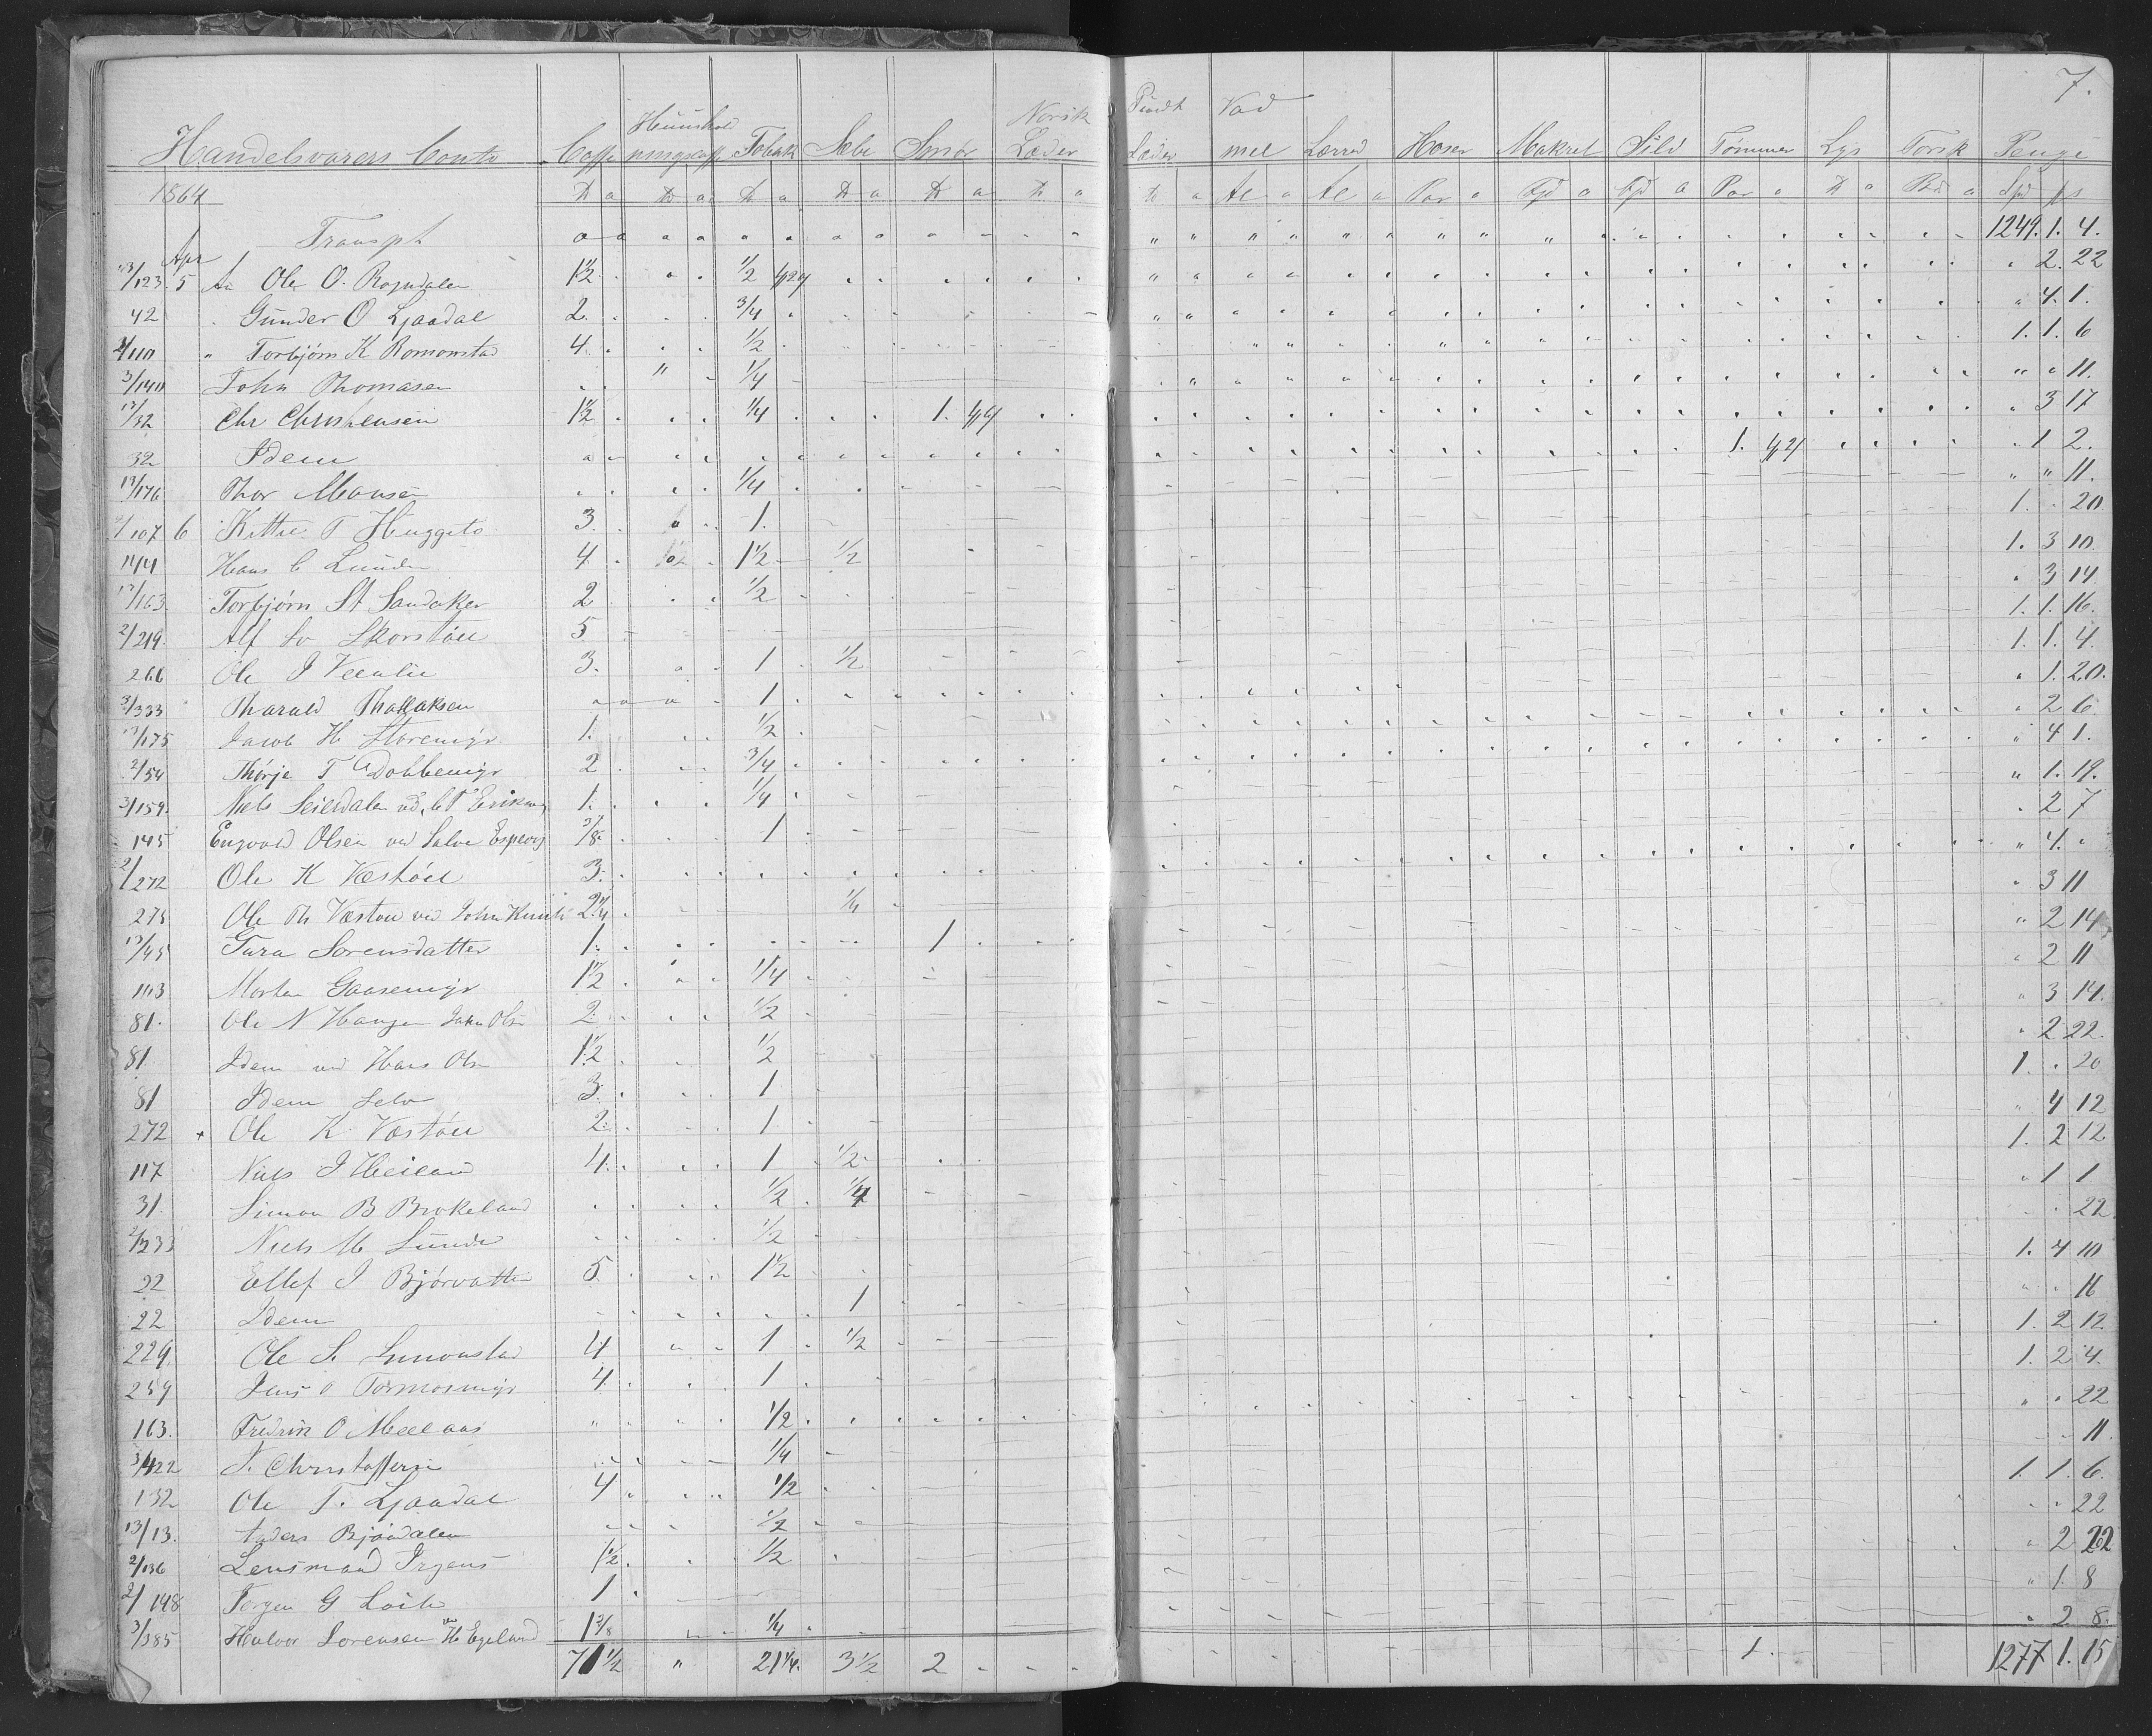 7.
Handelsvarers Conto Caffe Tobak Sæbe Smør Norsk Læder Læder Vad mel Lærred Hoser Makrel Sild Tømmer Lys Torsk Penge
1864 ℔ a ℔ a ℔ a ℔ a ℔ a ℔ a ℔ a Al a Al a Par a a a a ℔ a a Spd
Transpt 1249. 1. 4.
Apr
13/123. 5 An Ole O. Rogndalen 1 1/2 1/2 2. 22
42 Gunder O Ljaadal 2. 3/4 4. 1.
2/110 " Torbjørn K Romonstad 4. 1/2 1. 1. 6
John Thomasen " 1/4 11.
13/32 Chr Christensen 1 1/2 1/4 1. 3 17
32 Idem 1. 1 2.
13/176 Thor Monsen 1/4 11.
2/107 6 Kittil T Huggeto 3. 1. 1. 20
144 Hans C Lunden 4 1 1/2 1/2 1. 3 10
13/163 Torbjørn St Sandaker 2 1/2 3 14
2/219. Alf So Skorstøll 5 1. 1. 16.
266 Ole J Veealie 3. 1 1/2 1. 1. 4.
3/333 Tharald Thollaksen 1. 1. 20.
13/175 Jacob H Storemyr 1. 1/2 2 6
2/54 Thørje T Dobbemyr 2 3/4 4 1.
3/159. Niels Seilsdalen vd. 1. 1/4 1. 19.
145 Engvald Olsen ved Salve 3/8 1 2 7
2/272 Ole K Væstøll 3. 4.
275 Ole Th Væstøll ved John 2 1/4 1/4 3 11
13/45 Tura Sorensdatter 1. 1 2 14
103 Morten Gaasemyr 1 1/2 1/4 2 11
81. Ole N Haugen John Olsn 2. 1/2 3 14.
81 Idem ved Hans Olsn 1 1/2 1/2 2 22.
81 Idem Selv 3. 1 1. 20
272 + Ole K Væstøll 2. 1 4 12
117 Niels J Heiland 4. 1 1/2 1. 2 12
31. Simon B Brokeland 1/2 1/4 1 1
2/233 Niels M Lunde 1/2 22
22 Ellef J Bjørvatten 5 1 1/2 1. 4 10
22 Idem 1 16
229 Ole S. Simonstad 4 1 1/2 1. 2 12
259 Jens O Tormosmyr 4. 1 1. 2 4.
163. Fredrik O Meelaas 1/2 22
3/422 S. Christoffersen 1/4 11
132 Ole T. Ljaadal 4 1/2 1. 1. 6.
13/13. Anders Bjoudalen 1/2 22
2/136 Lensmand Irgens 1 1/2 1/2 2 22
2/148 Torgen G Loite 1 1 8
3/385 Halvor Sorensen ved H Egeland 1 3/8 1/4 2 8.
71 1/2 " 21 1/4. 3 1/2 2 1. 1277 1. 15